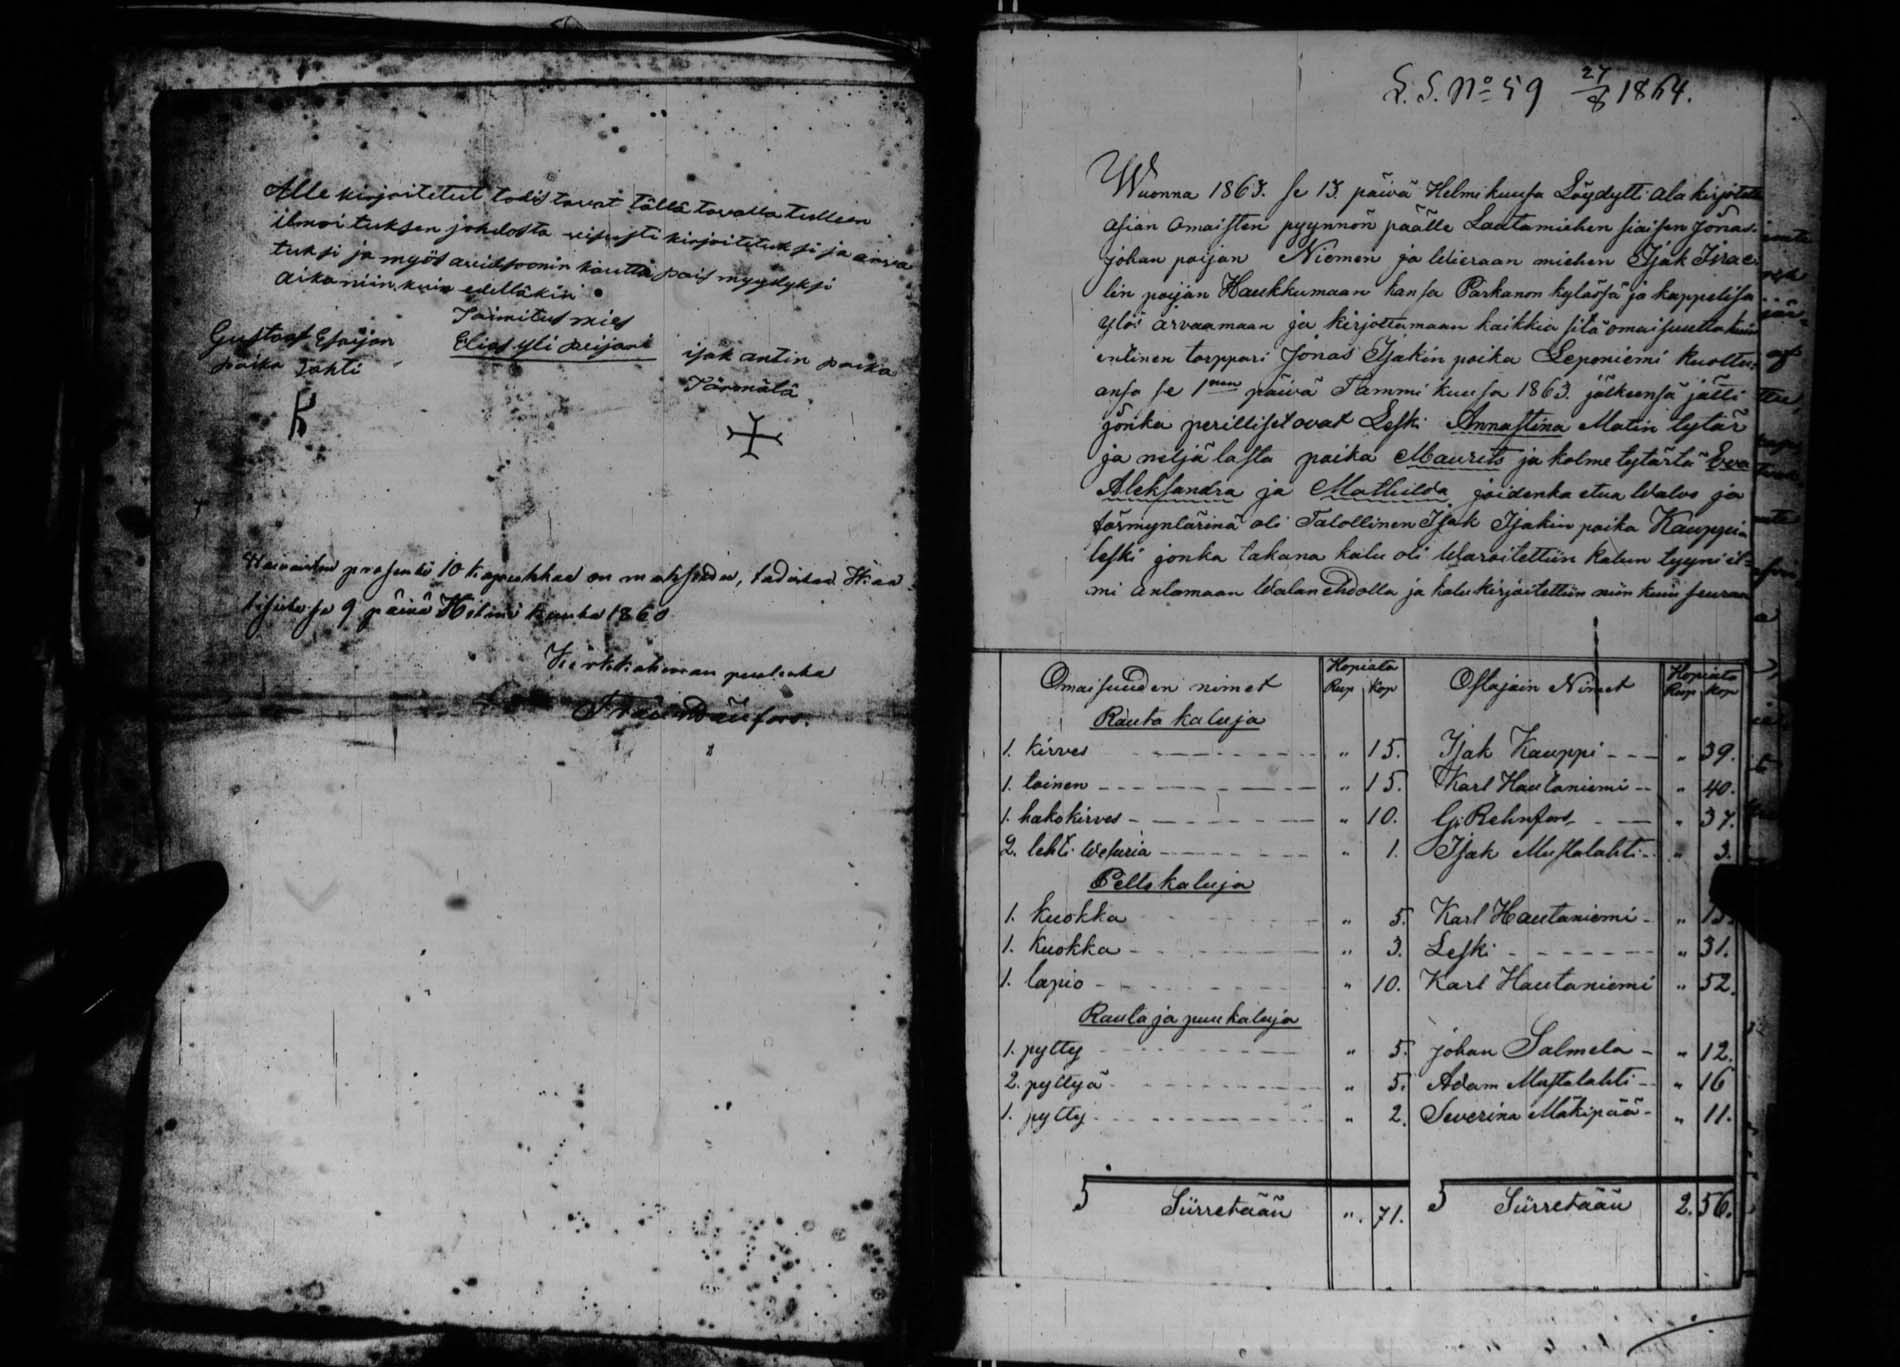 Alle kirjoitetut todistavat tällä tavalla tulleen
ilmoituksen johdosta visusti kirjoitetuksi ja arva
tuksi ja myös auidsoonin kautta pois myydyksi
aika niin kuin edelläkin
Toimitus mies
Gustaf Esaijan
poika Lahti
Elias yli peijari
isak antin poika
Järmälä
prosentti 10 kopeekkaa on maksettu, todistaa
9 päivä Helmi kuuta 1860
Kirkkoherran puolesta
L.S. No 59 27/8 1864.
Wuonna 1863. se 13. päivä Helmi kuusa Löydytti ala kirjotettu
asian omaisten pyynnön päälle Lautamiehen siaisen Jonas
Johan poijan Niemen ja Wieraan miehen Isak Israe
lin poijan Haukkumaan kansa Parkanon kyläsä ja kappelisa
ylös arvaamaan ja kirjottamaan kaikkia sitä omaisuutta kuin
entinen torppari Jonas Isakin poika Leponiemi kuoltu
ansa se 1nen päivä Tammi kuusa 1863. jälkeensä jätti
jonka perilliset ovat Leski Annastina Matin tytär
ja neljä lasta poika Maurits ja kolme tytärtä Eva
Aleksandra ja Mathilda joidenka etua Walvo ja
förmyntärinä oli Talollinen Isak Isakin poika Kauppi
leski jonka takana kalu oli Waroitettiin kalun tyyni il=
mi antamaan Walan ehdolla ja kalu kirjoitettiin niin kuin seuraa
Omaisuuden nimet Kopiata Rup Kop Ostajain Nimet Kopiata Rup Kop
Rauta kaluja
1. kirves " 15. Isak Kauppi " 39.
1. toinen " 15. Karl Hautaniemi " 40.
1. hakokirves " 10. G. Rehnfors " 37.
2. lehti Wesuria " 1. Isak Mustalahti " 3.
Pelto kaluja
1. kuokka " 5. Karl Hautaniemi "
1. kuokka " 3. Leski " 31.
1. lapio " 10. Karl Hautaniemi " 52.
Rauta ja puu kaluja
1. pytty " 5. Johan Salmela " 12.
2. pyttyä " 5. Adam Mustalahti " 16
1. pytty " 2. Severina Mäkipää " 11.
Siirretään " 71. Siirretään 2. 56.